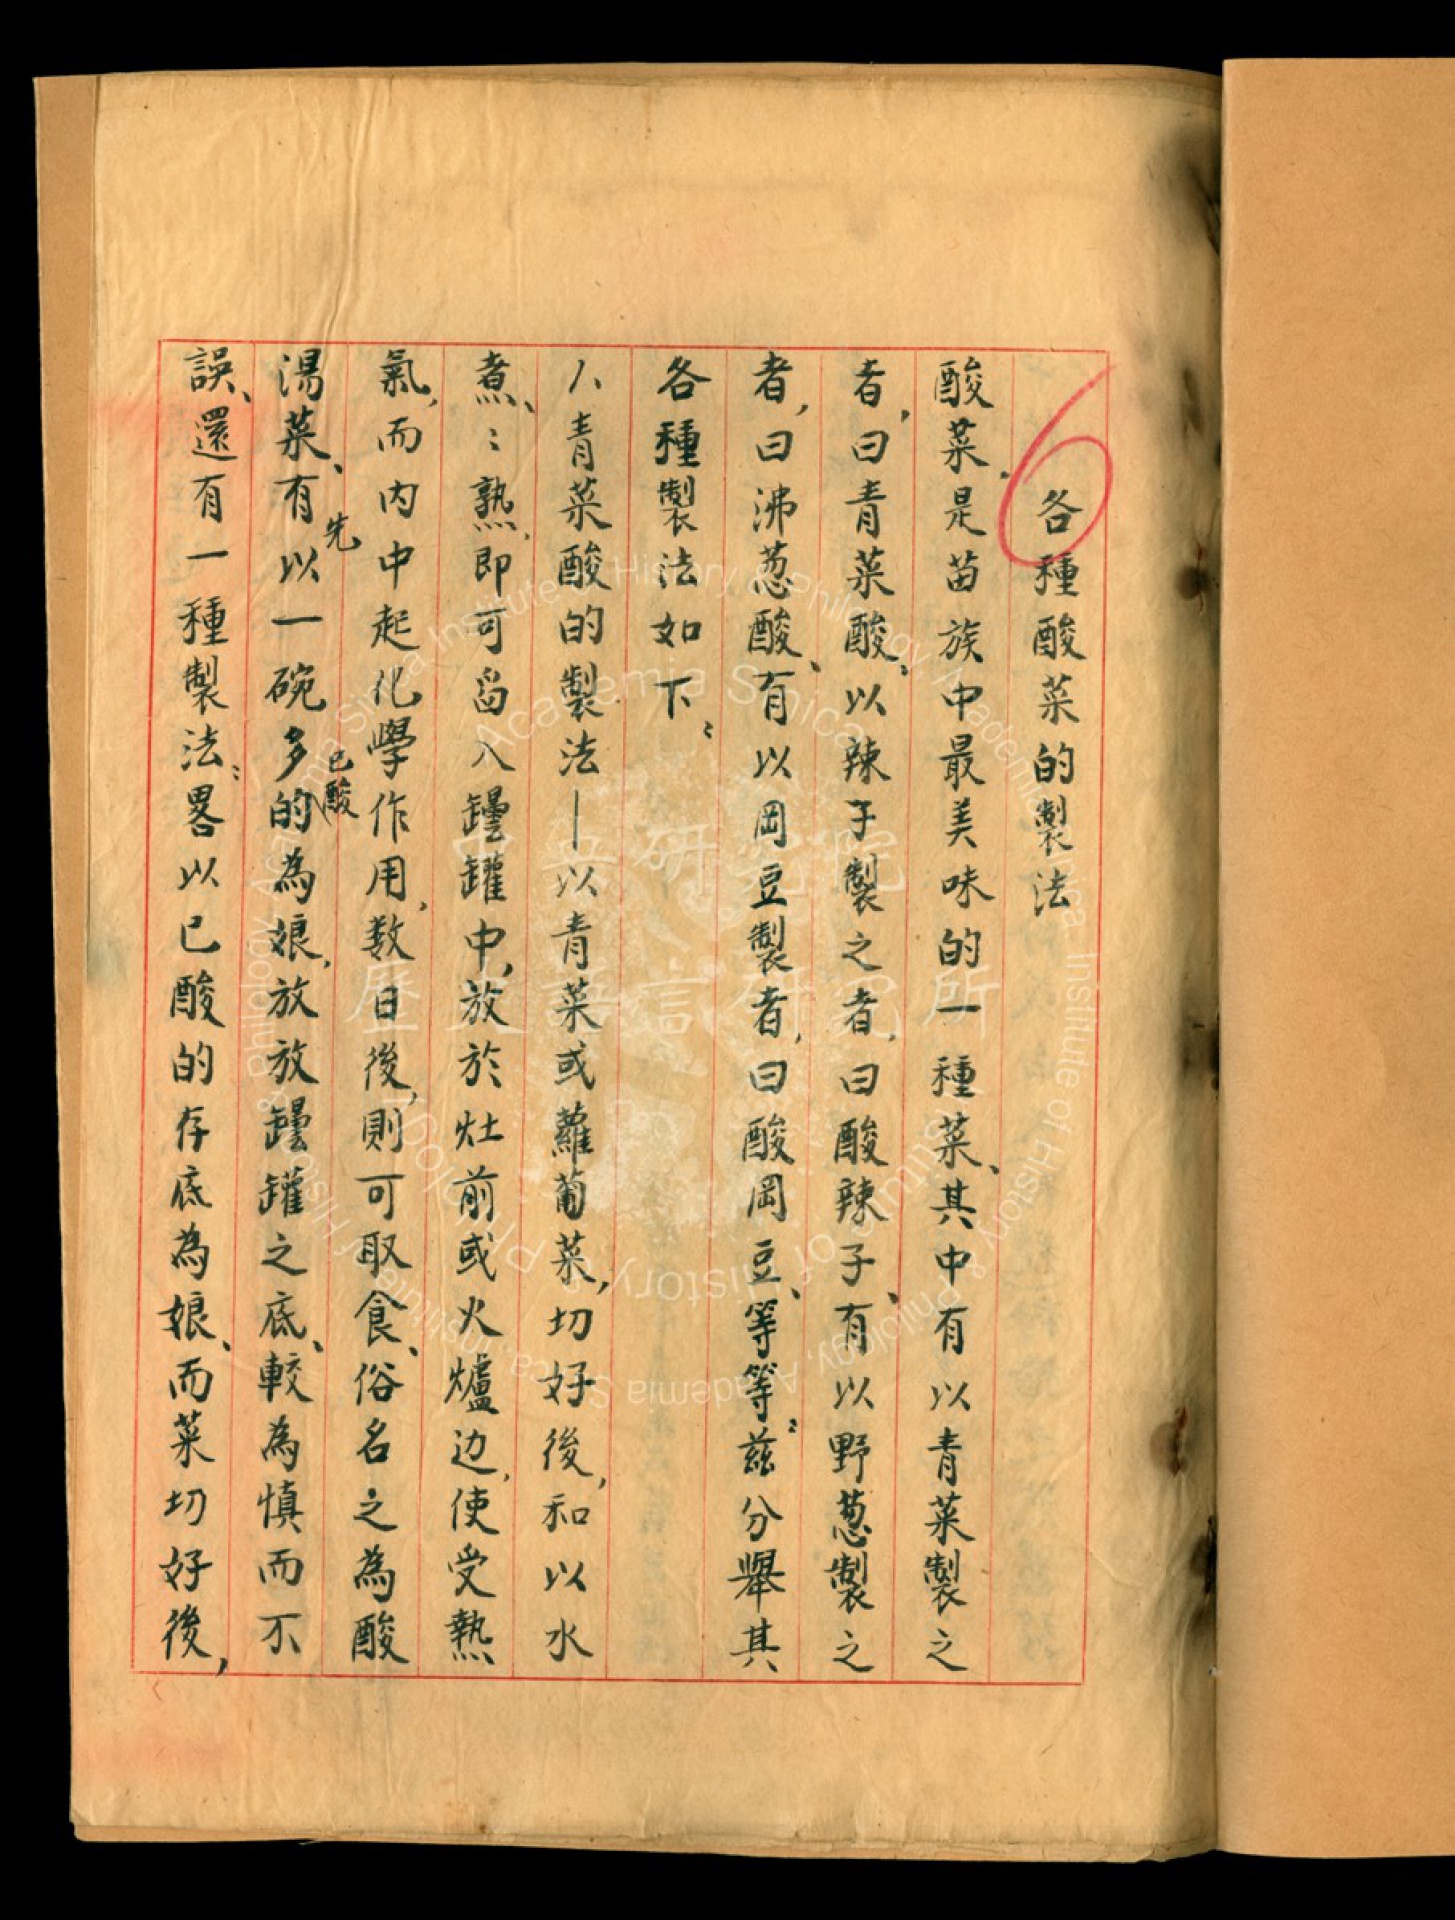 6
各種酸菜的製法
酸菜，是苗族中最美味的一種菜、其中有以青菜製之
者，曰青菜酸；以辣子製之者，曰酸辣子、有以野葱製之
者，曰沸葱酸、有以岡豆製者，曰酸岡豆、等等；茲分舉其
各種製法如下：
八青菜酸的製法—以青菜或蘿蔔菜，切好後，和以水
煮、：熟，即可舀入罎罐中，放於灶前或火爐边，使受熱
氣，而內中起化學作用，数日後，則可取食、俗名之為酸
湯菜、有先以一碗多的已酸為娘，放放罎罐之底、較為慎而不
誤、還有一種製法：畧以已酸的存底為娘、而菜切好後，